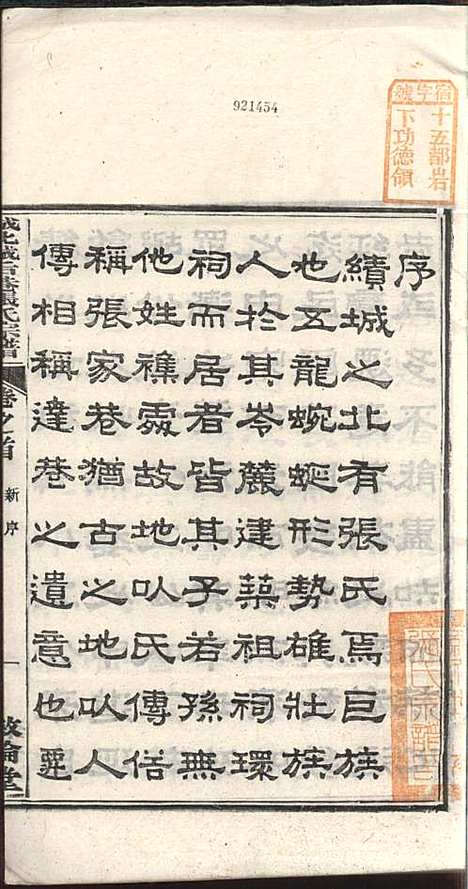 921454
宿字號
十五都岩
下功德領
序
績城之北有張氏焉巨族
也五龍蜿蜒形勢雄壯族
人於其岑麓建築祖祠環
祠而居者皆其子若孫無
他姓襍處故地以氏傳俗
稱張家巷猶古之地以人
傳相稱達巷之遺意也
卷之首
新序
一
敘倫堂